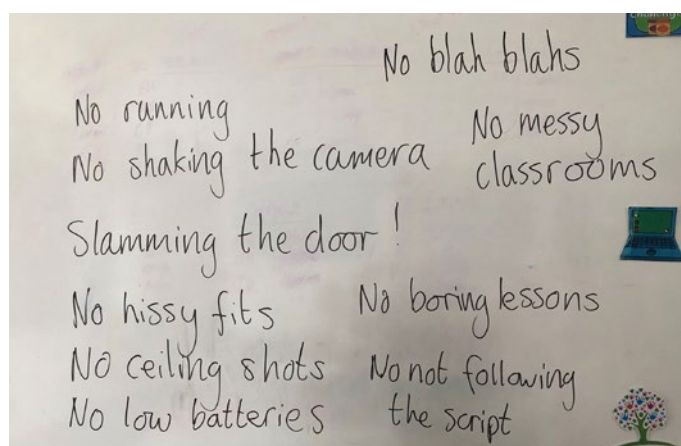 No blah blahs
No running
No shaking the camera
No messy
classrooms
Slamming the door!
No hissy fits
No boring lessons
No ceiling shots
No low batteries
No not following
the script